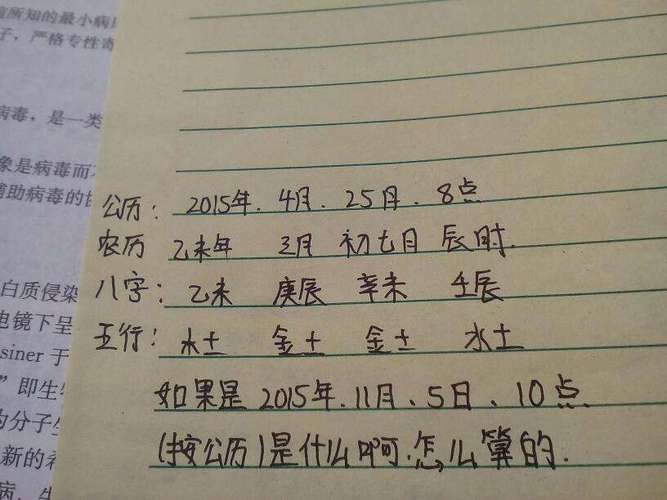 所知的最小病
子，严格专性寄
病毒，是一类
象是病毒而
辅助病毒的
白质侵染
电镜下呈
siner 于
” 即生
为分子生
新的
病，
公历: 2015年. 4月. 25日. 8点
农历 乙未年 三月 初七日 辰时.
八字: 乙未 庚辰 辛未 壬辰
五行: 木土 金土 金土 水土
如果是 2015年.11月.5日、10点
(按公历)是什么啊.怎么算的.